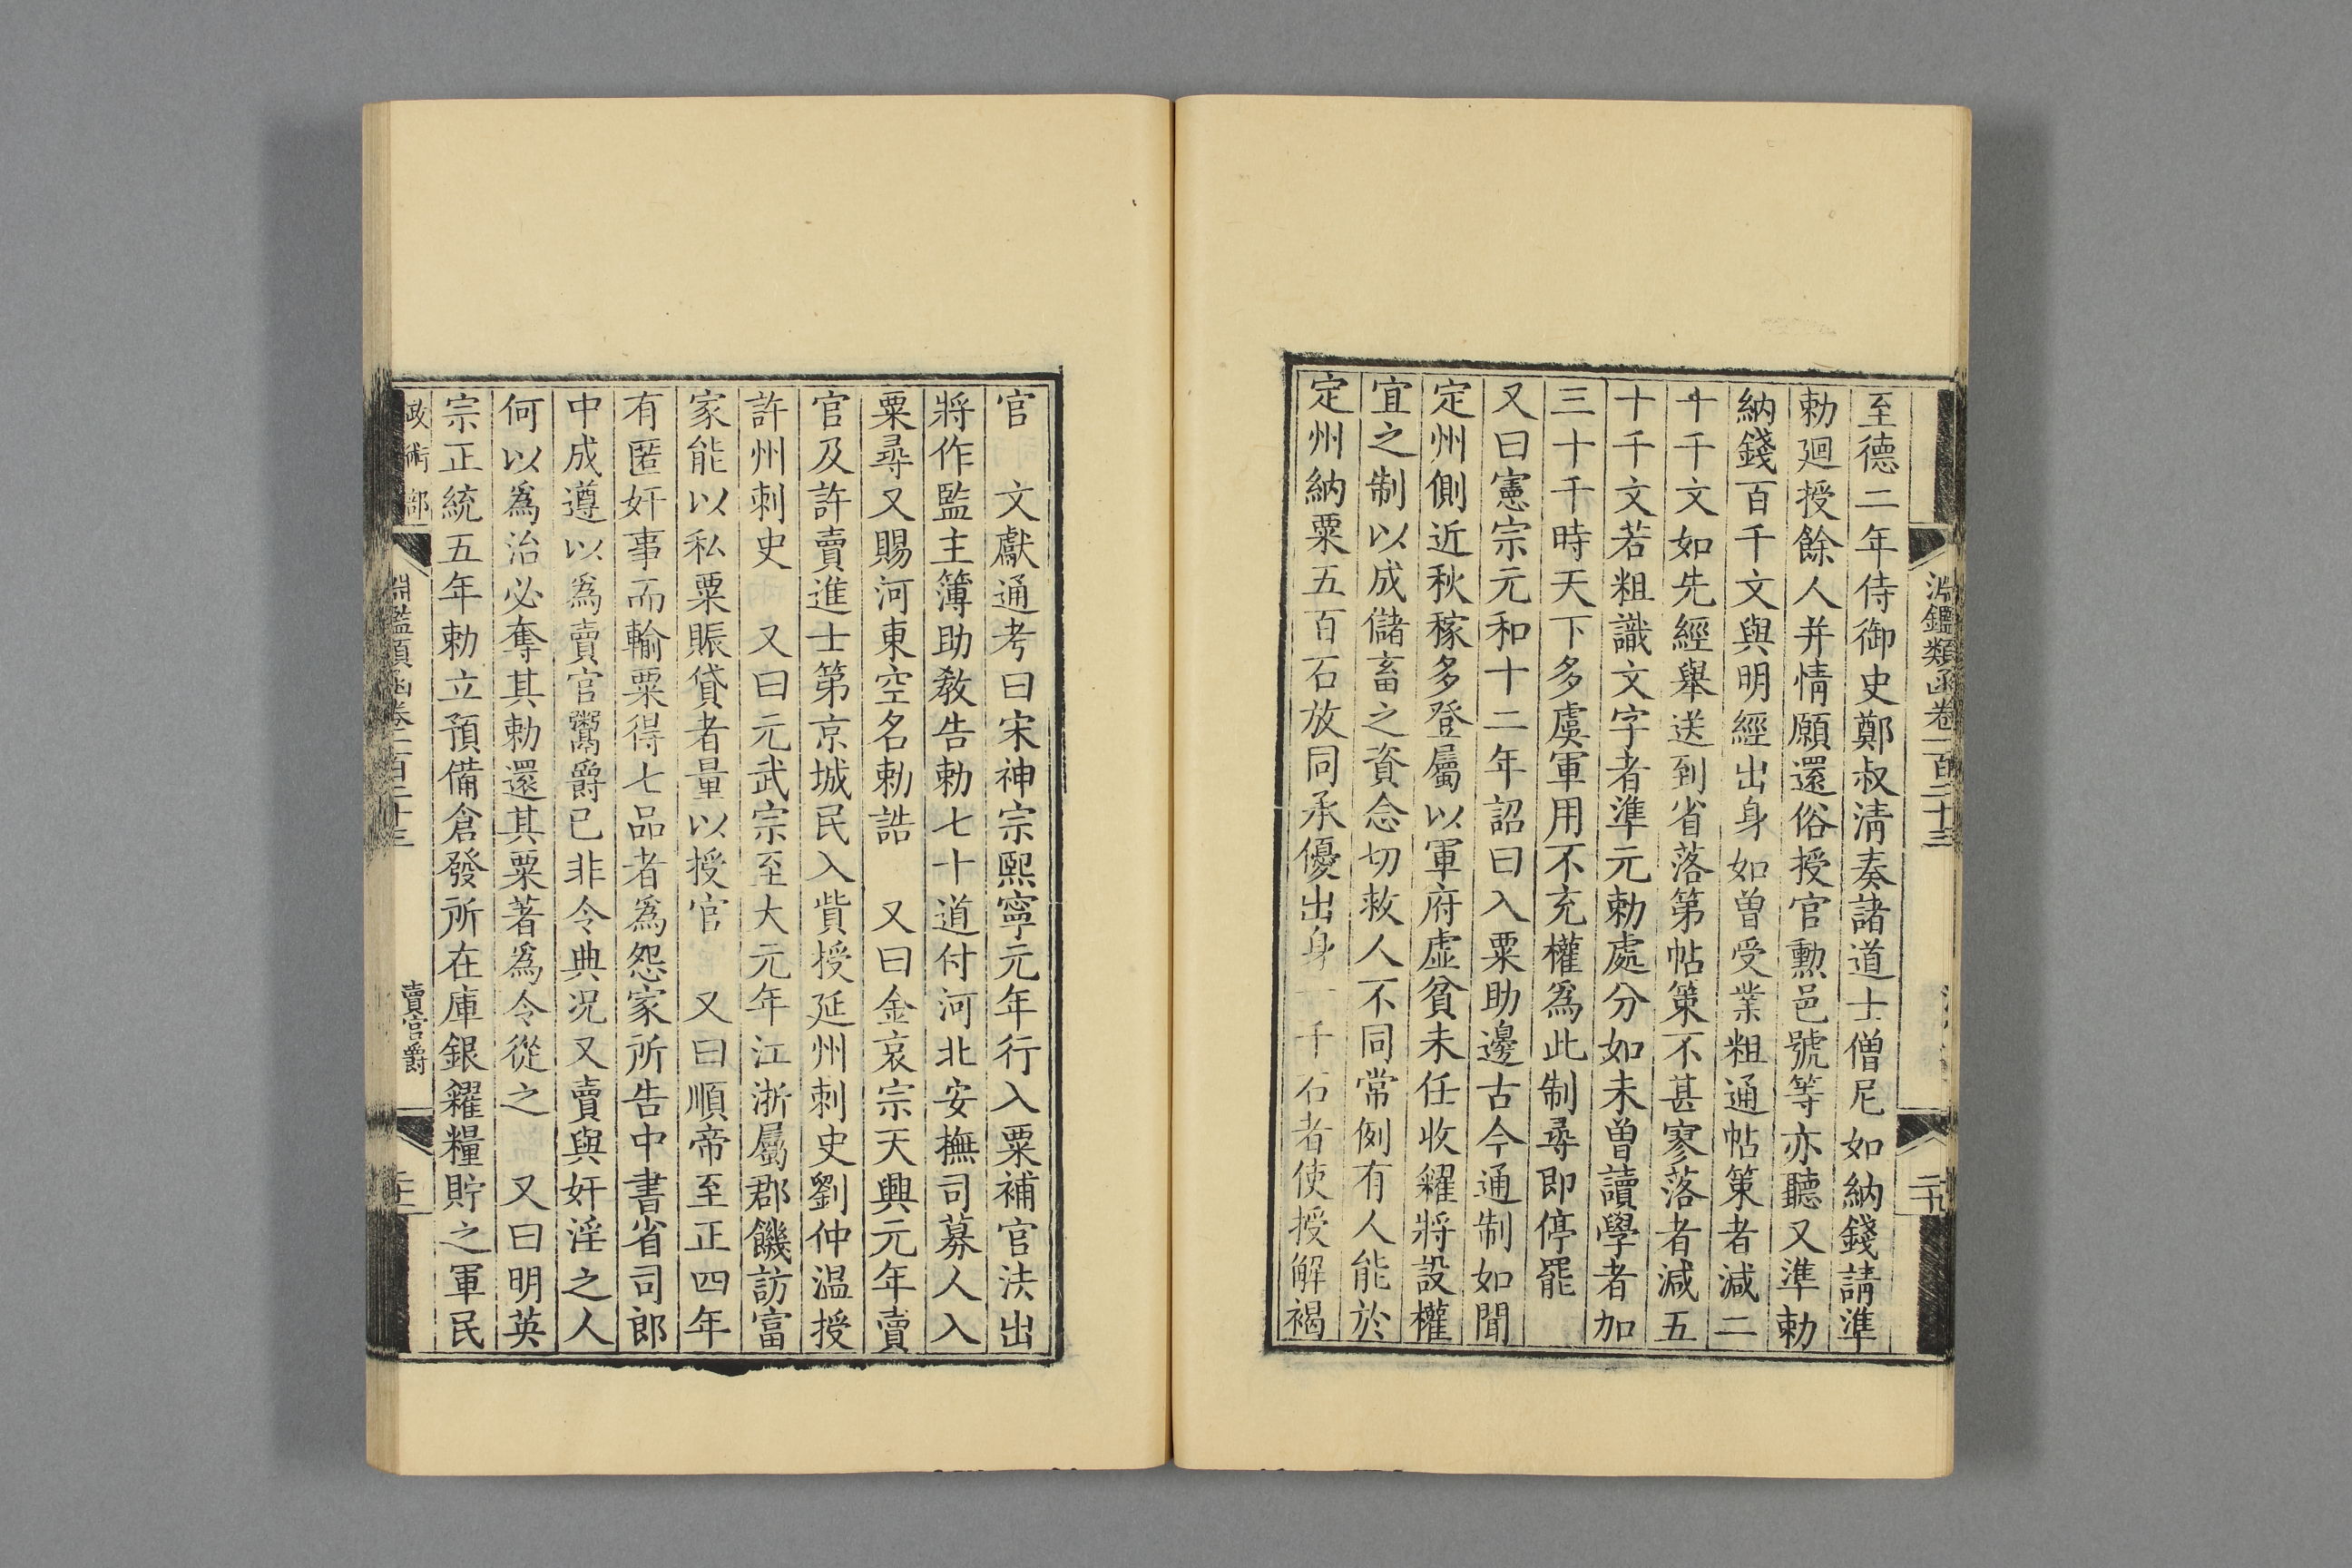 淵鑑類函卷一百二十三
至德二年侍御史鄭叔淸奏諸道士僧尼如納錢請準
勅廻授餘人并情願還俗授官勳邑號等亦聽又準勅
納錢百千文與明經出身如曾受業粗通帖策者減二
十千文如先經舉送到省落第帖策不甚寥落者減五
十千文若粗識文字者準元勅處分如未曾讀學者加
三十千時天下多虞軍用不充權爲此制尋即停罷
又曰憲宗元和十二年詔曰入粟助邊古今通制如聞
定州側近秋稼多登屬以軍府虛貧未任收糴將設權
宜之制以成儲畜之資念切救人不同常例有人能於
定州納粟五百石放同承優出身一千石者使授解褐
官　文獻通考曰宋神宗熙寧元年行入粟補官法出
將作監主簿助敎告勅七十道付河北安撫司募人入
粟尋又賜河東空名勅誥　又曰金哀宗天興元年賣
官及許賣進士第京城民入貲授延州刺史劉仲温授
許州刺史　又曰元武宗至大元年江浙屬郡饑訪富
家能以私粟賑貸者量以授官　又曰順帝至正四年
有匿奸事而輸粟得七品者爲怨家所告中書省司郎
中成遵以爲賣官鬻爵已非令典况又賣與奸淫之人
何以爲治必奪其勅還其粟著爲令從之　又曰明英
宗正統五年勅立預備倉發所在庫銀糴糧貯之軍民
政術部
淵鑑類函卷一百二十三
賣官爵